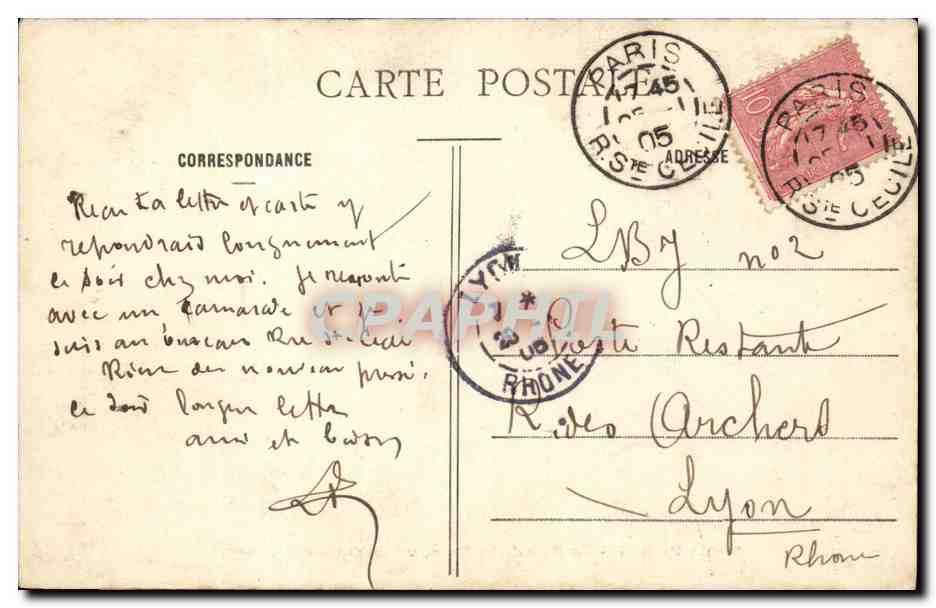 CARTE POSTALE
PARIS
17 45
05
R. STE CECILE
10
PARIS
17 45
05
R. STE CECILE
CORRESPONDANCE
ADRESSE
Reçu ta lettre et carte y
repondrais longuement
ce soir chez moi. Je
avec un camarade et
suis au bureau Rue Ste Cecil
Rien de nouveau
ce soir longue lettre
et
LBJ no 2
Poste Restante
R. des Archers
Lyon
Rhone
LYON
RHONE
CPAPHIL